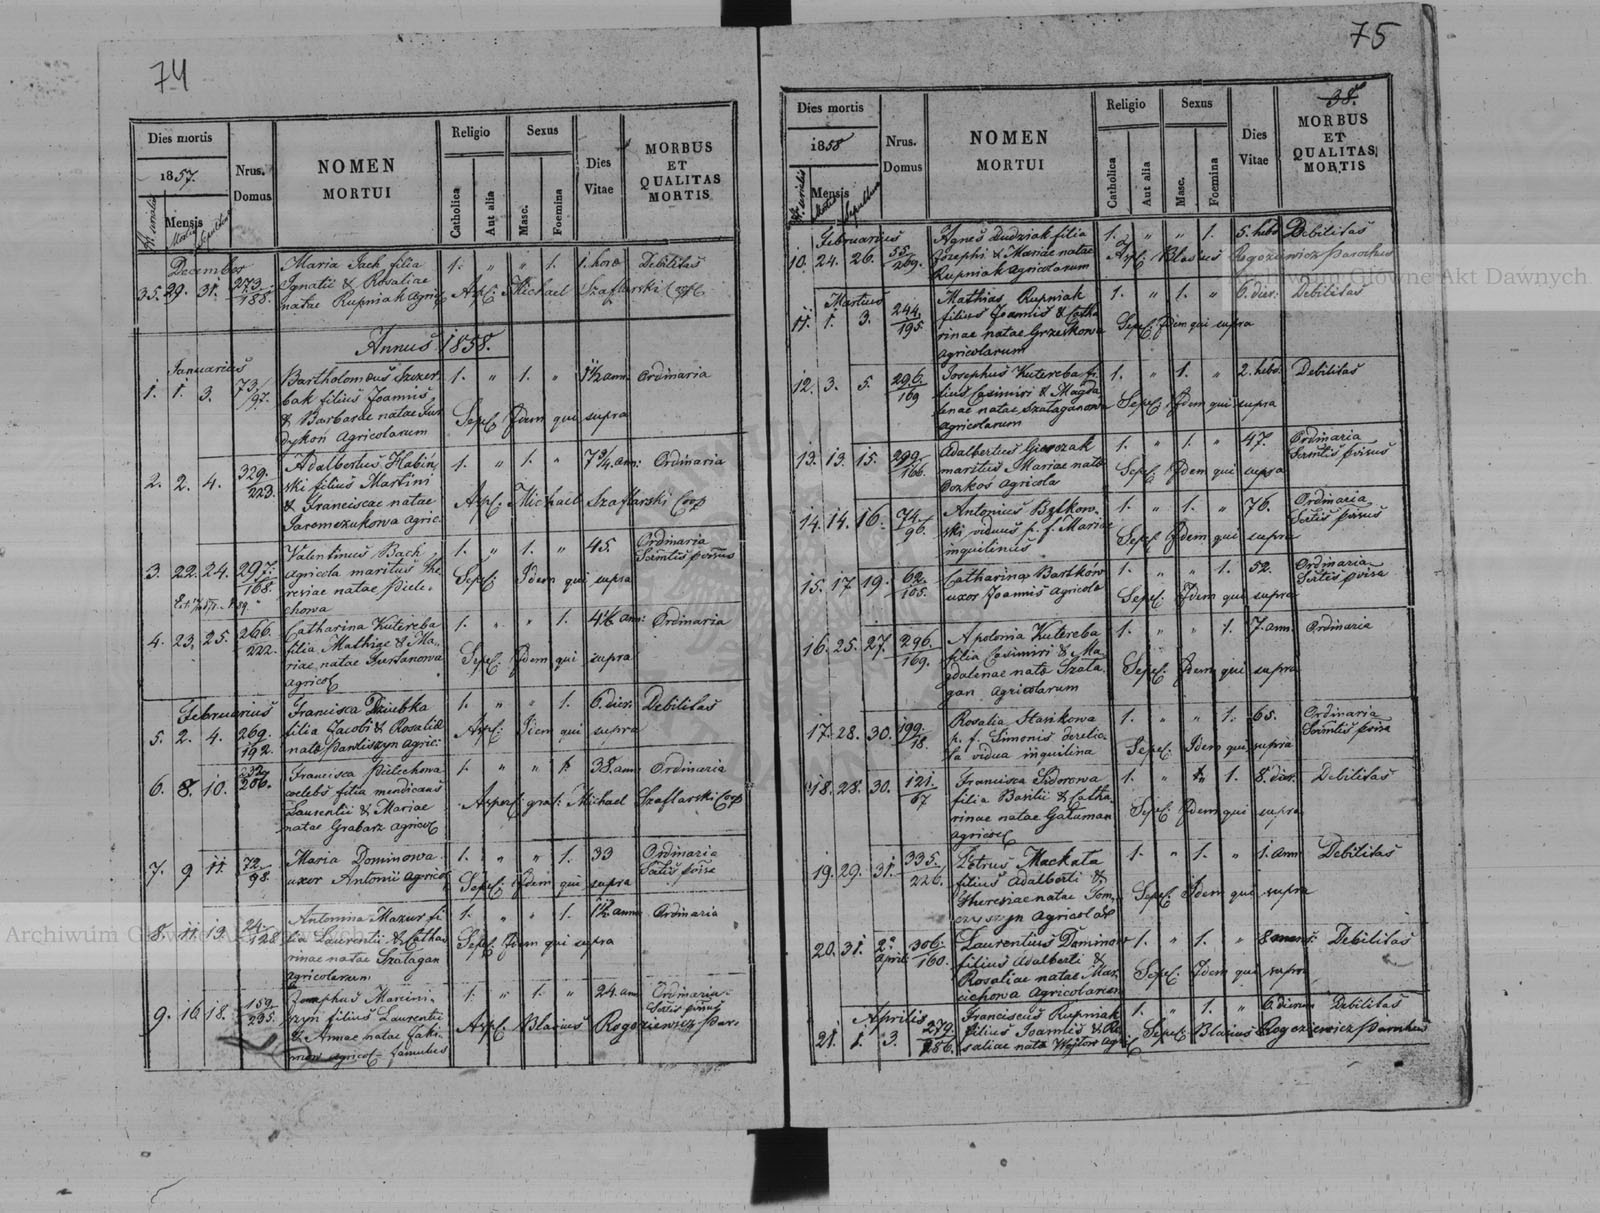 74
Dies mortis
1857.
Nr. serialis
Mensis
Mortis
Sepultura
Nrus. Domus
NOMEN
MORTUI
Religio
Catholica
Aut alia
Sexus
Masc.
Foemina
Dies Vitae
MORBUS
ET
QUALITAS
MORTIS
December
35. 29. 31. 273/188. Maria Jach filia 1. " " 1. 1. hora Debilitas
Ignatii & Rosaliae
natae Rupniak Agric. Asp: Michael Szaflarski Coop
Annus 1858.
Januarius
1. 1. 3. 73/97. Bartholomæus Szczer 1. " 1. " 1½ ann. Ordinaria
bak filius Joannis
& Barbarae natae Gur Sepel: Idem qui supra
dykon Agricolarum
2. 2. 4. 329./223. Adalbertus Habin 1. " 1. " 7¾ ann: Ordinaria
ski filius Martini
& Franciscae natae Asp: Michael Szaflarski Coop
Jaremczukowa agric.
3. 22. 24. 297./168. Valentinus Bach 1. " 1. " 45. Ordinaria
Agricola maritus The Scrmtis provisus
resiae natae Piele- Sepel: Idem qui supra
chowa
4. 23. 25. 266./222. Catharina Kutereba 1. " " 1. ann: Ordinaria
filia Mathiae & Ma-
riae natae Furtanowa Sepel: Idem qui supra
agricol
Februarius
5. 2. 4. 269./192. Francisca Dziubka 1. " " 1. 6. dier: Debilitas
filia Jacobi & Rosaliæ
nata Pantiszyn Agric: Asp: Idem qui supra
6. 8. 10. 232/206. Francisca Pielechowa 1. " " 1. 38. ann Ordinaria
coelebs filia mendicans
Laurentii & Mariae Aspers gras: Michael Szaflarski Coop
natae Grabarz agricol
7. 9 11. 72./98. Maria Dominowa 1. " " 1. 33 Ordinaria
uxor Antonii Agricol Sepel: Idem qui supra
8. 11. 13. 24./128 Antonina Mazur fi 1. " " 1. 1½ anni Ordinaria
lia Laurentii & Catha
rinae natae Szatagan Sepel: Idem qui supra
agricolarum
9. 16 18. 159./235. Josephus Marcini- 1. " 1. " 24. ann Ordinaria
szyn filius Laurentii
& Annae natae Jaki- Asp: Blasius Rogoziewicz Par.
mow agricol famulus
75
38.
Dies mortis
1858
Nr. serialis
Mensis
Mortis
Sepultura
Nrus. Domus
NOMEN
MORTUI
Religio
Catholica
Aut alia
Sexus
Masc.
Foemina
Dies Vitae
MORBUS
ET
QUALITAS
MORTIS
Februarius
10. 24. 26. 55/269. Agnes Dudziak filia 1. " " 1. 5. hebd Debilitas
Josephi & Mariae natae Asp: Blasius Rogoziewicz Parochus
Rupniak Agricolarum
Martius
11. 1. 3. 244./195 Mathias Rupniak 1. " 1. " 6. dier: Debilitas
filius Joannis & Catha
rinae natae Grzeskowa Sepel: Idem qui supra
agricolarum
12. 3. 5. 296./169 Josephus Kutereba fi 1. " 1. " 2. hebd. Debilitas
lius Casimiri & Magda
lenae natae Szataganowa Sepel: Idem qui supra
agricolarum
13. 13. 15. 299./166. Adalbertus 1. " 1. " 47. Ordinaria
maritus Mariae nata Scrmtis provisus
Bozkos agricola Sepel: Idem qui supra
14. 14. 16. 74./96. Antonius Bytkow- 1. " 1. " 76. Ordinaria
ski viduus p. f. Mariae
inquilinus Sepel: Idem qui supra
15. 17 19. 62./105. Catharina Bartkow 1. " " 1. 52. Ordinaria
uxor Joannis agricola Sepel: Idem qui supra
16. 25. 27. 296./169. Apolonia Kutereba 1. " " 1. 7. ann. Ordinaria
filia Casimiri & Ma
gdalenae nata Szata Sepel: Idem qui supra
gan Agricolarum
17. 28. 30. 199./18. Rosalia Stasikowa 1. " " 1. 65. Ordinaria
p. f. Simonis derelic-
ta vidua inquilina Sepel: Idem qui supra
18. 28. 30. 121./67 Francisca Sidorowa 1. " 1. 8. dier. Debilitas
filia Basilii & Catha
rinae natae Gataman Sepel: Idem qui supra
agricol
19. 29. 31. 335./226. Petrus Mackata 1. " 1. " 1. ann Debilitas
filius Adalberti &
Theresiae natae Tom- Sepel: Idem qui supra
czyszyn Agricolar
20. 31. 2. Aprili 306./160. Laurentius Dominow 1. " 1. " 8 mens: Debilitas
filius Adalberti &
Rosaliae natae Mar Sepel: Idem qui supra
cichowa Agricolarum
Aprilis
21. 1. 3. 279./186. Franciscus Rupniak 1. " 1. " 6. dierum Debilitas
filius Joannis & Ro Sepel: Blasius Rogoziewicz Parochus
saliae nata Wojtow Agr
Archiwum Główne Akt Dawnych
Archiwum Główne Akt Dawnych